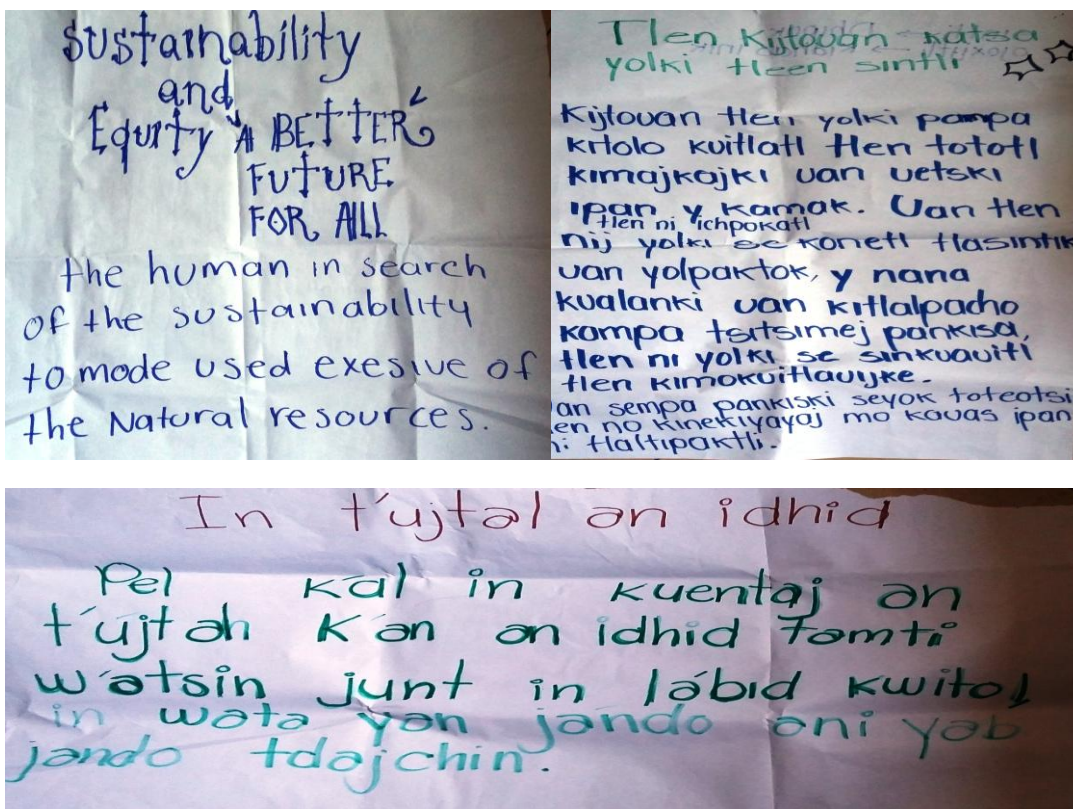 Sustainability
and
Equity "A BETTER"
FUTURE
FOR ALL
the human in search
of the sustainability
to mode used exesive of
the Natural resources.
Tlen Kijtouan katsa
yolki tleen sintli
Kijtouan tlen yolki pampa
kitolo kuitlatl tlen tototl
kimajkajki uan uetski
ipan y kamak. Uan tlen
tlen ni ichpokatl
nij yolki se konetl tlasintik
uan yolpaktok, y nana
kualanki uan kitlalpacho
kampa tsitsimej pankisa,
tlen ni yolki se sinkuauitl
tlen kimokuitlauijke.
an sempa pankiski seyok toteotsi
en no kinekiyayaj mo kauas ipan
ni tlaltipaktli.
In t'ujtal an idhid
Pel kal in kuentaj an
t'ujtah k'an an idhid tamti
w'atsin junt in lábid kwitol
in wata yan jando ani yab
jando tdajchin.